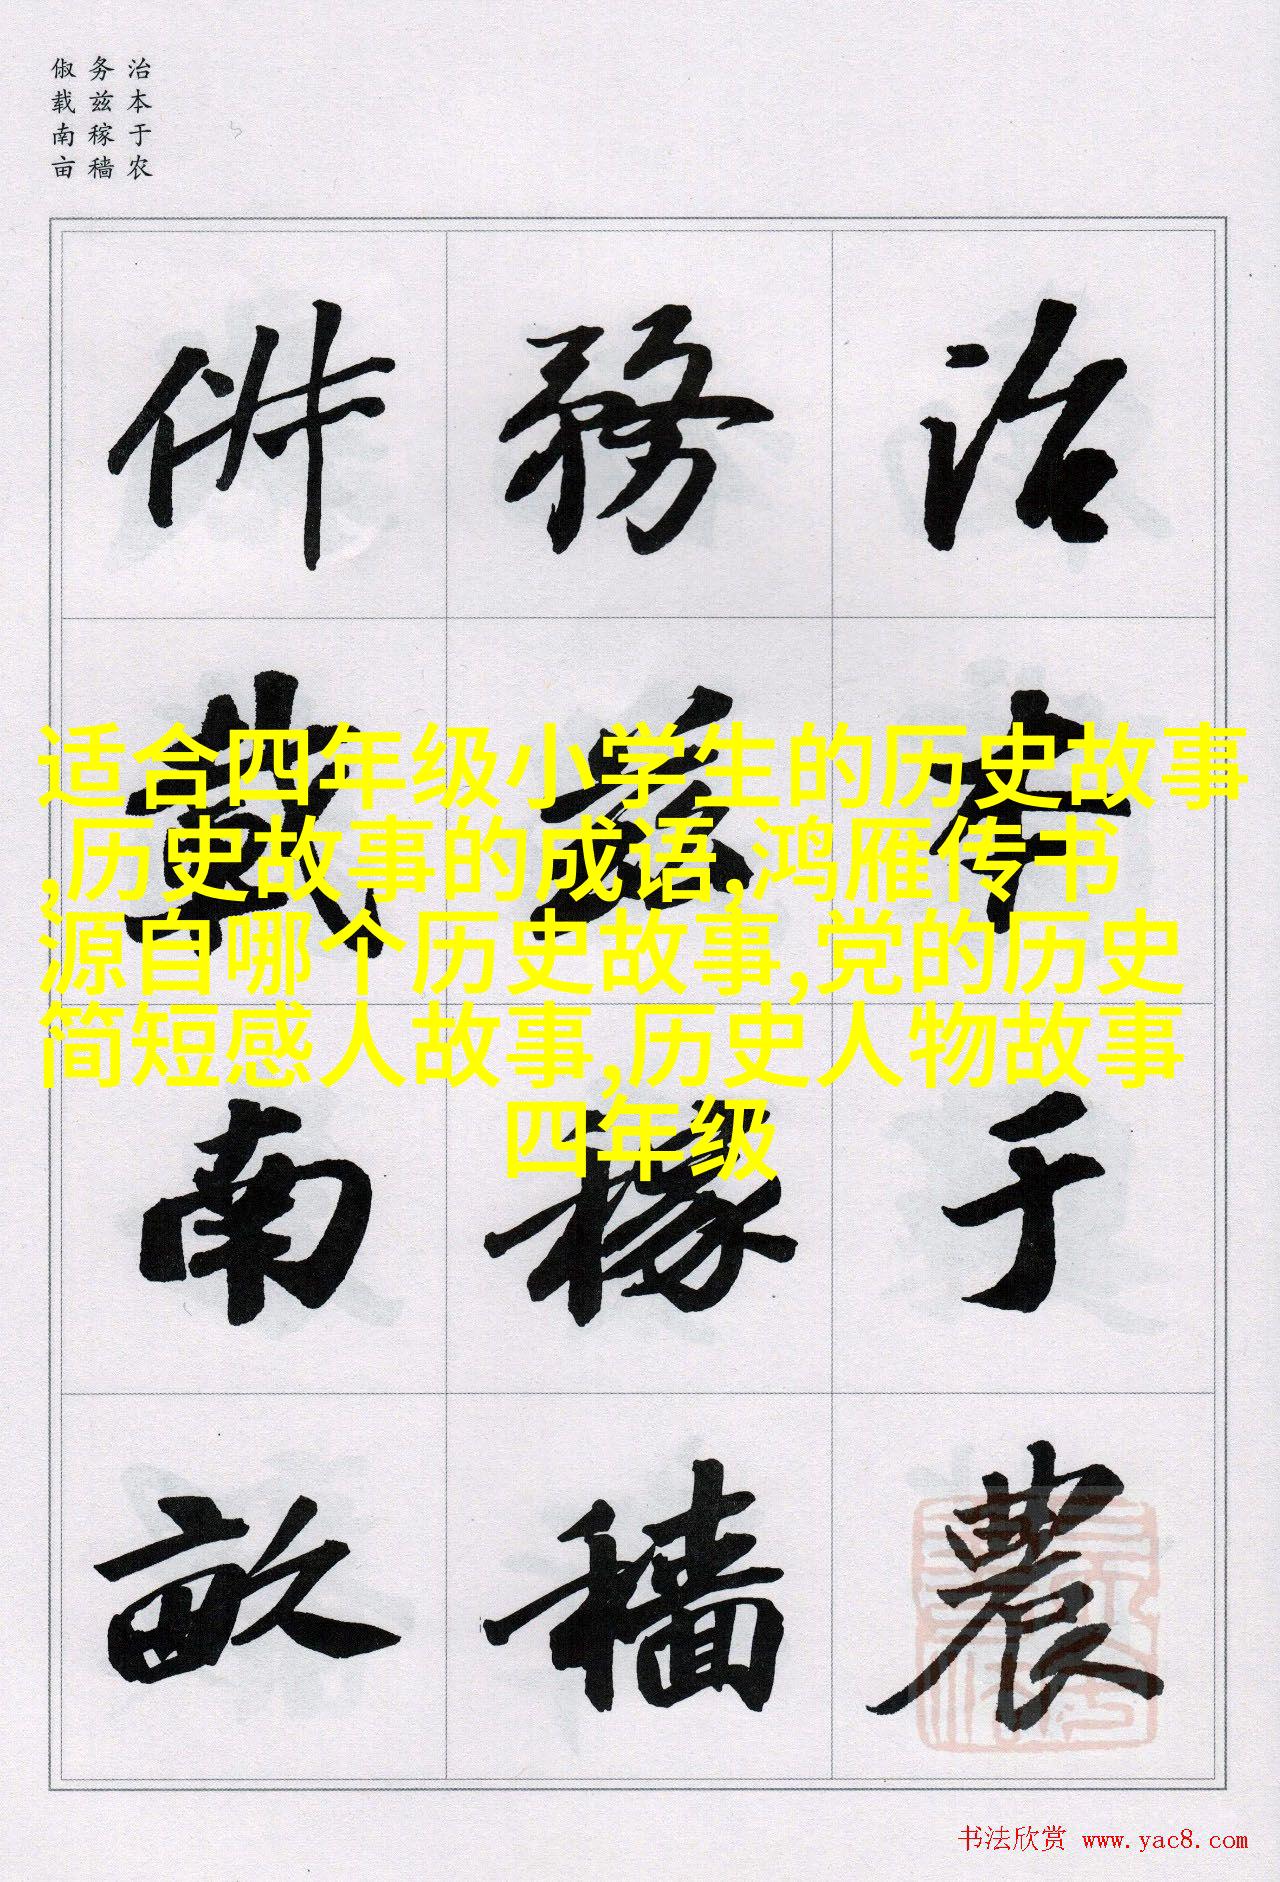 治本于农
务兹稼穑
俶载南亩
治本于農
務兹稼穡
俶載南畝
适合四年级小学生的历史故事
,历史故事的成语,鸿雁传书
源自哪个历史故事,党的历史
简短感人故事,历史人物故事
四年级
书法欣赏 www.yac8.com